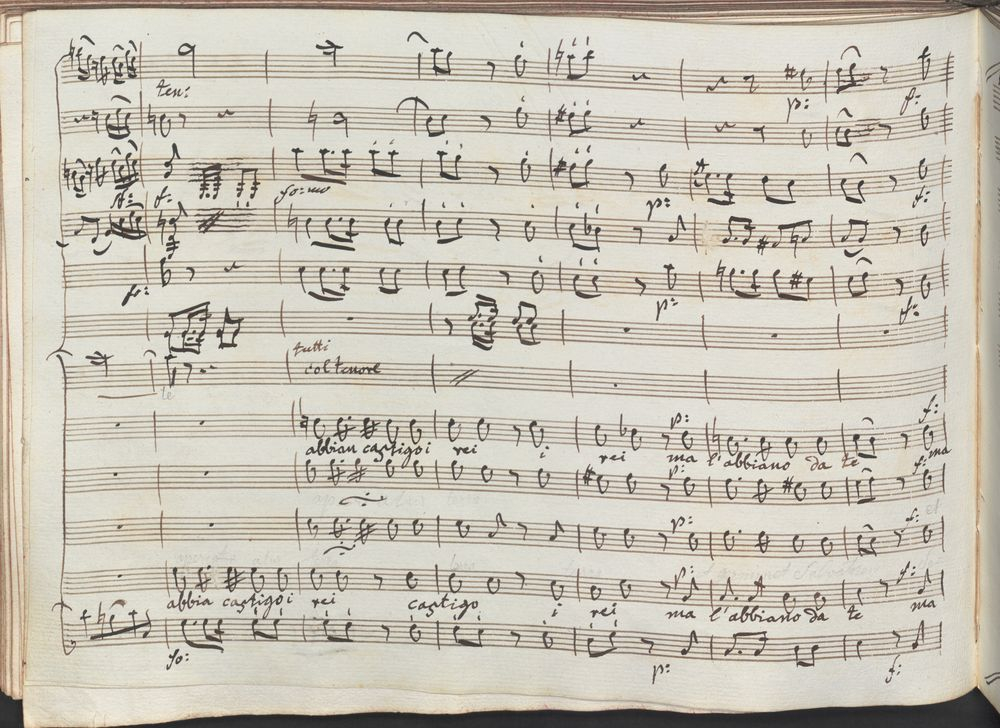 ten:
p: f:
f: f: fo:mo p: f:
fo: p: f:
tutti
col tenore
te
f:
p:
abbian castigo i rei i rei ma l'abbiano da te ma
p: f:
p: f:
p: f:
abbia castigo i rei castigo i rei ma l'abbiano da te ma
fo: p: f: